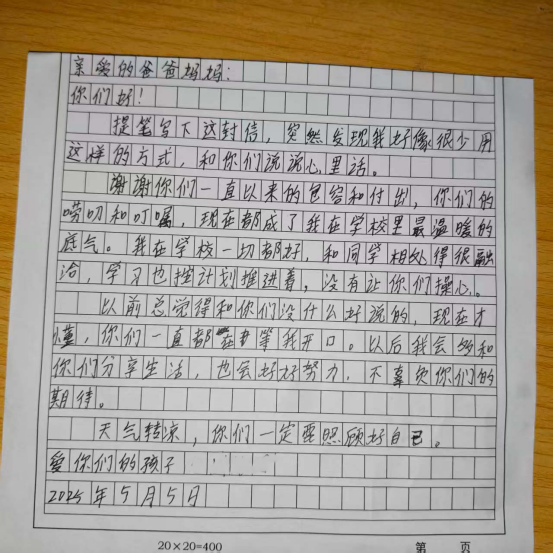 亲爱的爸爸妈妈:
你们好!
提笔写下这封信,突然发现我好像很少用
这样的方式,和你们说说心里话。
谢谢你们一直以来的包容和付出,你们的
唠叨和叮嘱,现在都成了我在学校里最温暖的
底气。我在学校一切都好,和同学相处得很融
洽,学习也按计划推进着,没有让你们操心。
以前总觉得和你们没什么好说的,现在才
懂,你们一直都在等我开口。以后我会多和
你们分享生活,也会好好努力,不辜负你们的
期待。
天气转凉,你们一定要照顾好自己。
爱你们的孩子
2025年5月5日
20×20=400 第 页